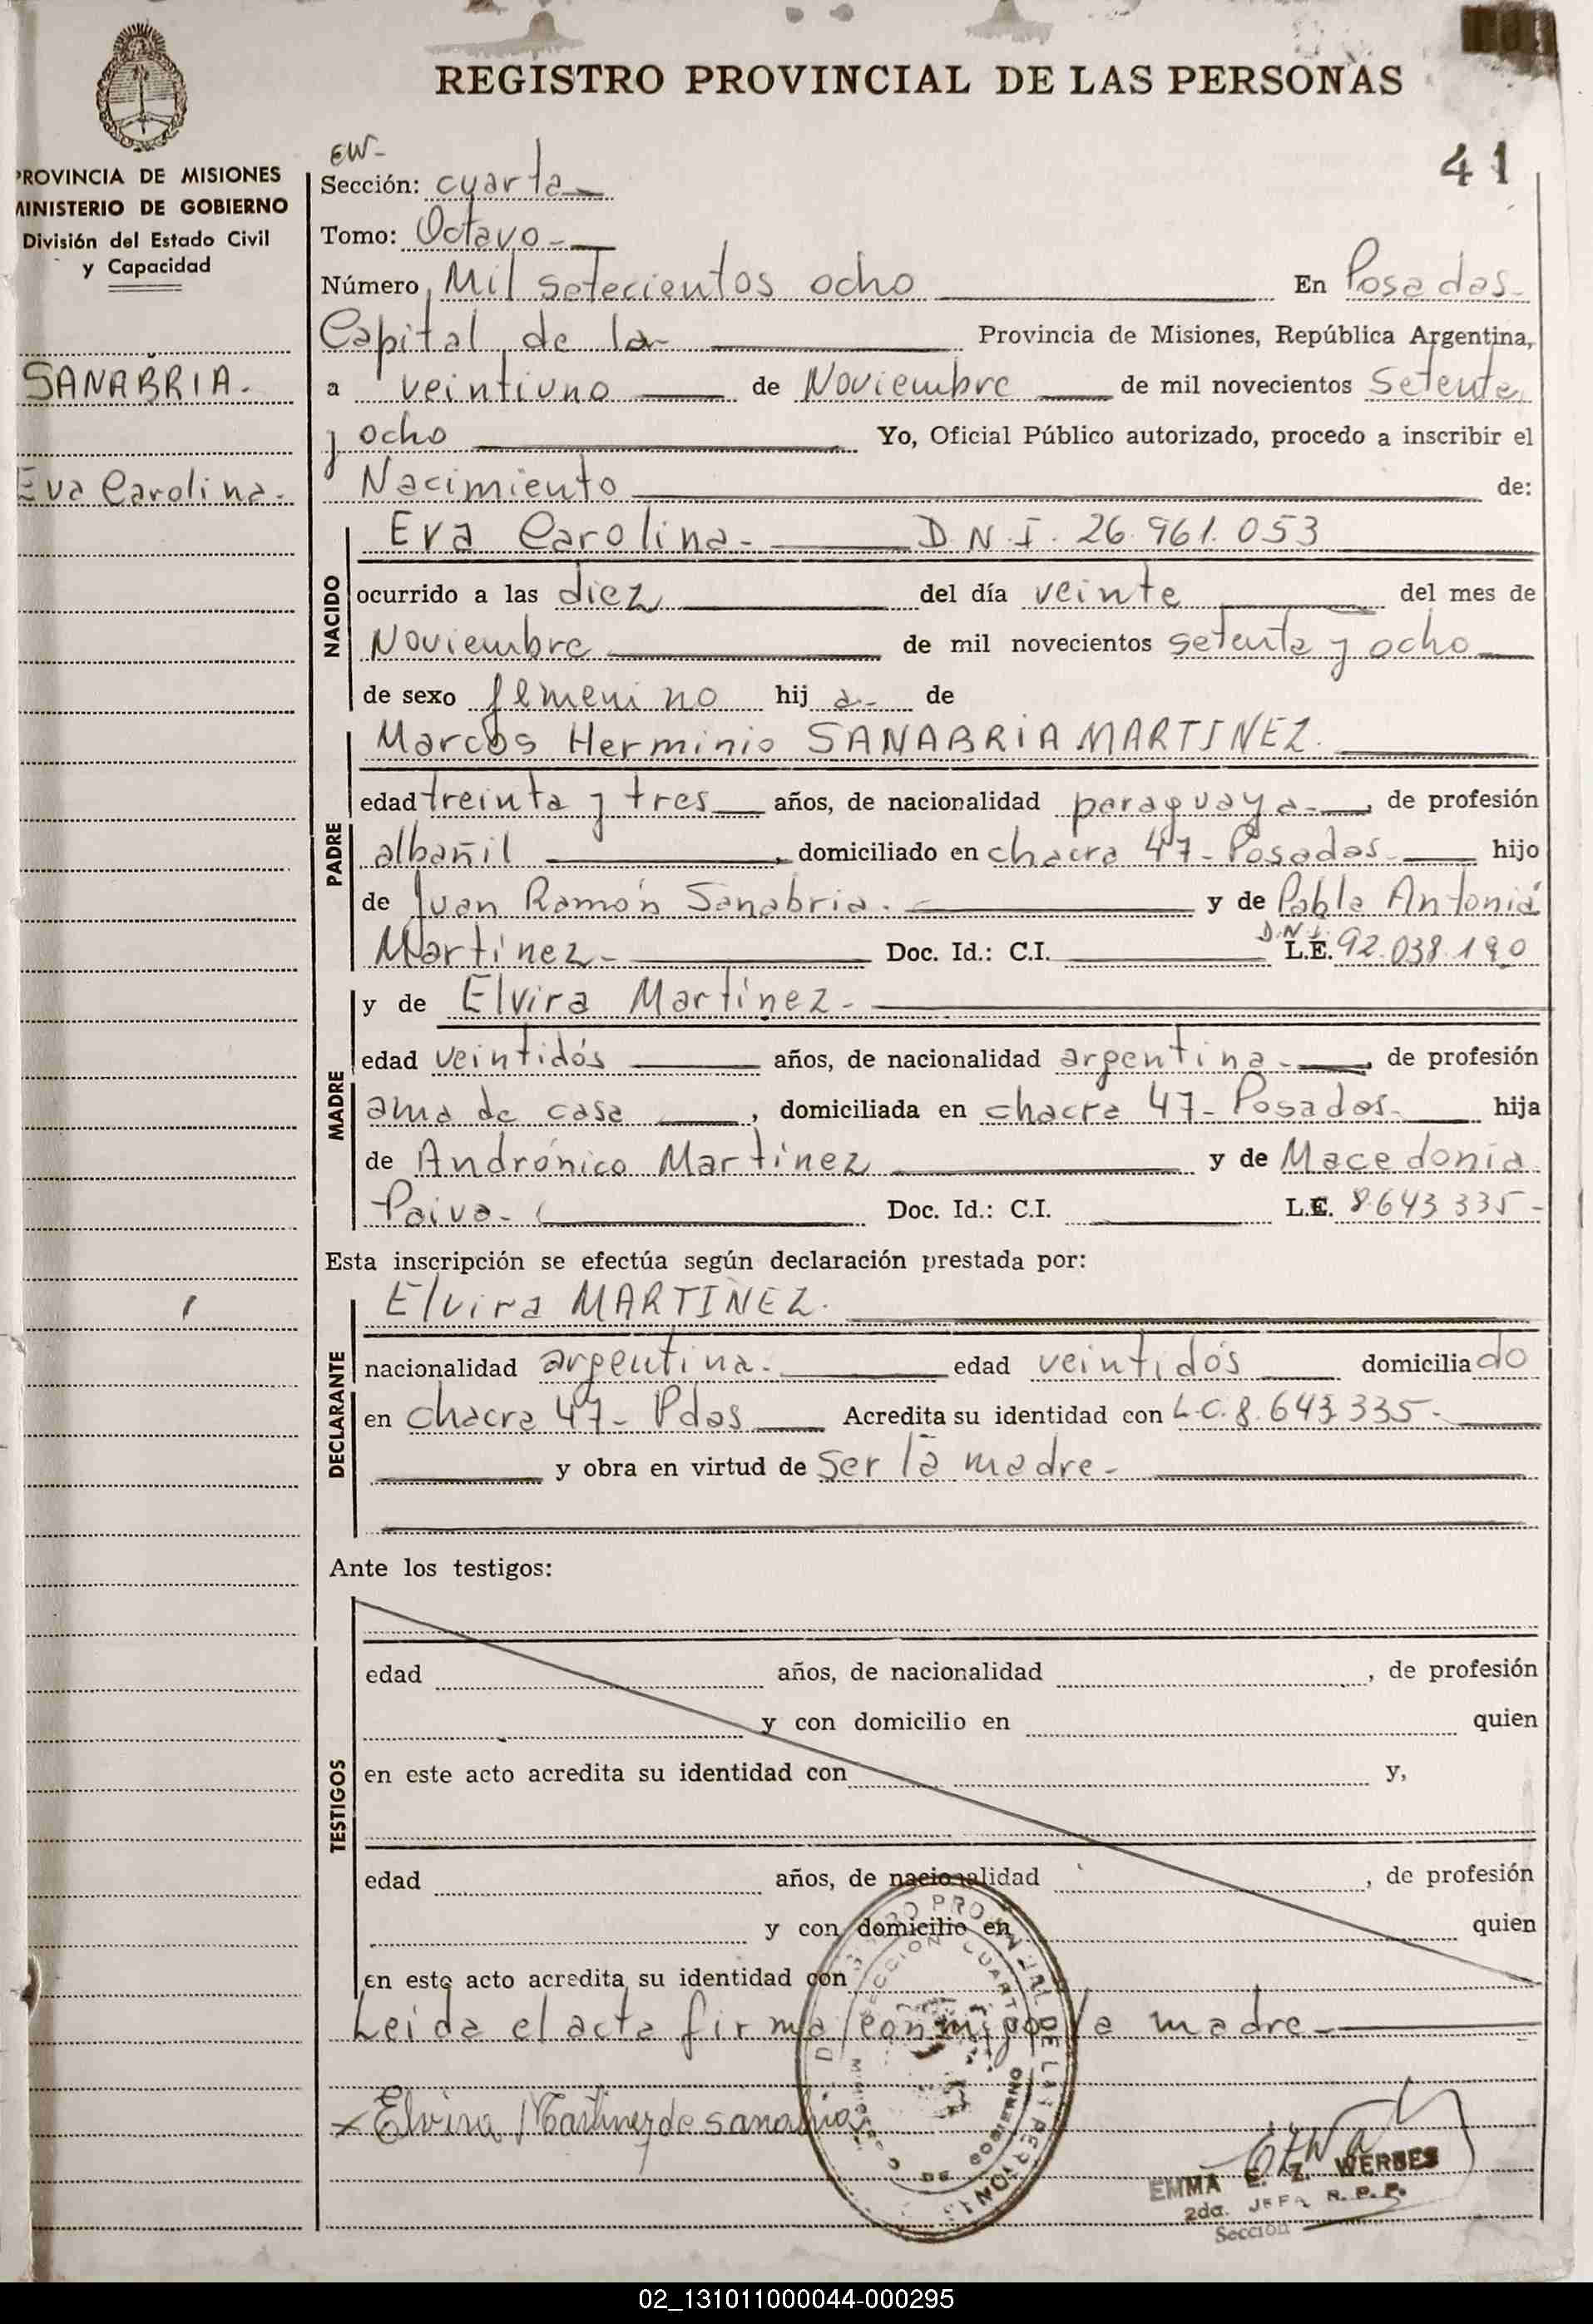 REGISTRO PROVINCIAL DE LAS PERSONAS
41
PROVINCIA DE MISIONES
MINISTERIO DE GOBIERNO
División del Estado Civil
y Capacidad
SANABRIA.
Eva Carolina.
EW-
Sección: cuarta
Tomo: Octavo
Número Mil setecientos ocho En Posadas
Capital de la Provincia de Misiones, República Argentina,
a veintiuno de Noviembre de mil novecientos Setenta
y ocho Yo, Oficial Público autorizado, procedo a inscribir el
Nacimiento de:
NACIDO
Eva Carolina. D.N.I. 26.961.053
ocurrido a las diez del día veinte del mes de
Noviembre de mil novecientos setenta y ocho
de sexo femenino hij a de
PADRE
Marcos Herminio SANABRIA MARTINEZ.
edad treinta y tres años, de nacionalidad paraguaya, de profesión
albañil, domiciliado en chacra 47- Posadas hijo
de Juan Ramón Sanabria. y de Pabla Antonia
Martínez Doc. Id.: C.I. D.N.I. L.E. 92.038.190
MADRE
y de Elvira Martínez-
edad veintidós años, de nacionalidad argentina, de profesión
ama de casa, domiciliada en chacra 47- Posadas hija
de Andrónico Martínez y de Macedonia
Paiva- Doc. Id.: C.I. L.C. 8.643.335-
Esta inscripción se efectúa según declaración prestada por:
DECLARANTE
Elvira MARTINEZ.
nacionalidad argentina. edad veintidós domicilia do
en chacra 47- Pdas Acredita su identidad con L.C. 8.643.335-
y obra en virtud de ser la madre-
Ante los testigos:
TESTIGOS
edad años, de nacionalidad , de profesión
y con domicilio en quien
en este acto acredita su identidad con y,
edad años, de nacionalidad , de profesión
y con domicilio en quien
en este acto acredita su identidad con
Leida el acta firma conmigo la madre-
x Elvira Martinez de Sanabria
EMMA E. Z. WERBES
2da. JEFA R.P.P.
Sección
02_131011000044-000295